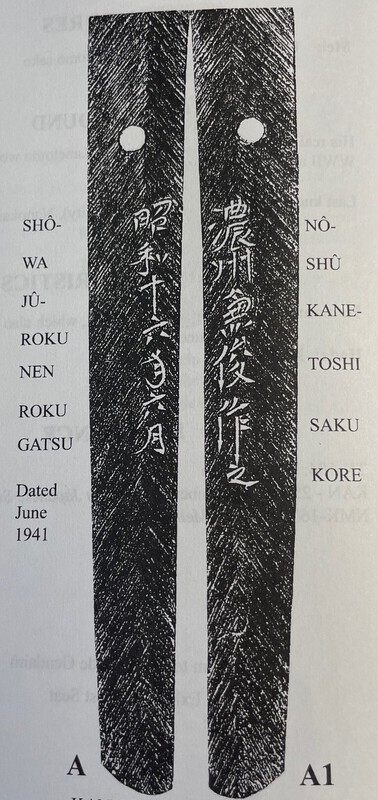 SHÔ-
WA
JÛ-
ROKU
NEN
ROKU
GATSU
Dated
June
1941
昭和十六年六月
濃州兼俊作之
NÔ-
SHÛ
KANE-
TOSHI
SAKU
KORE
A
A1